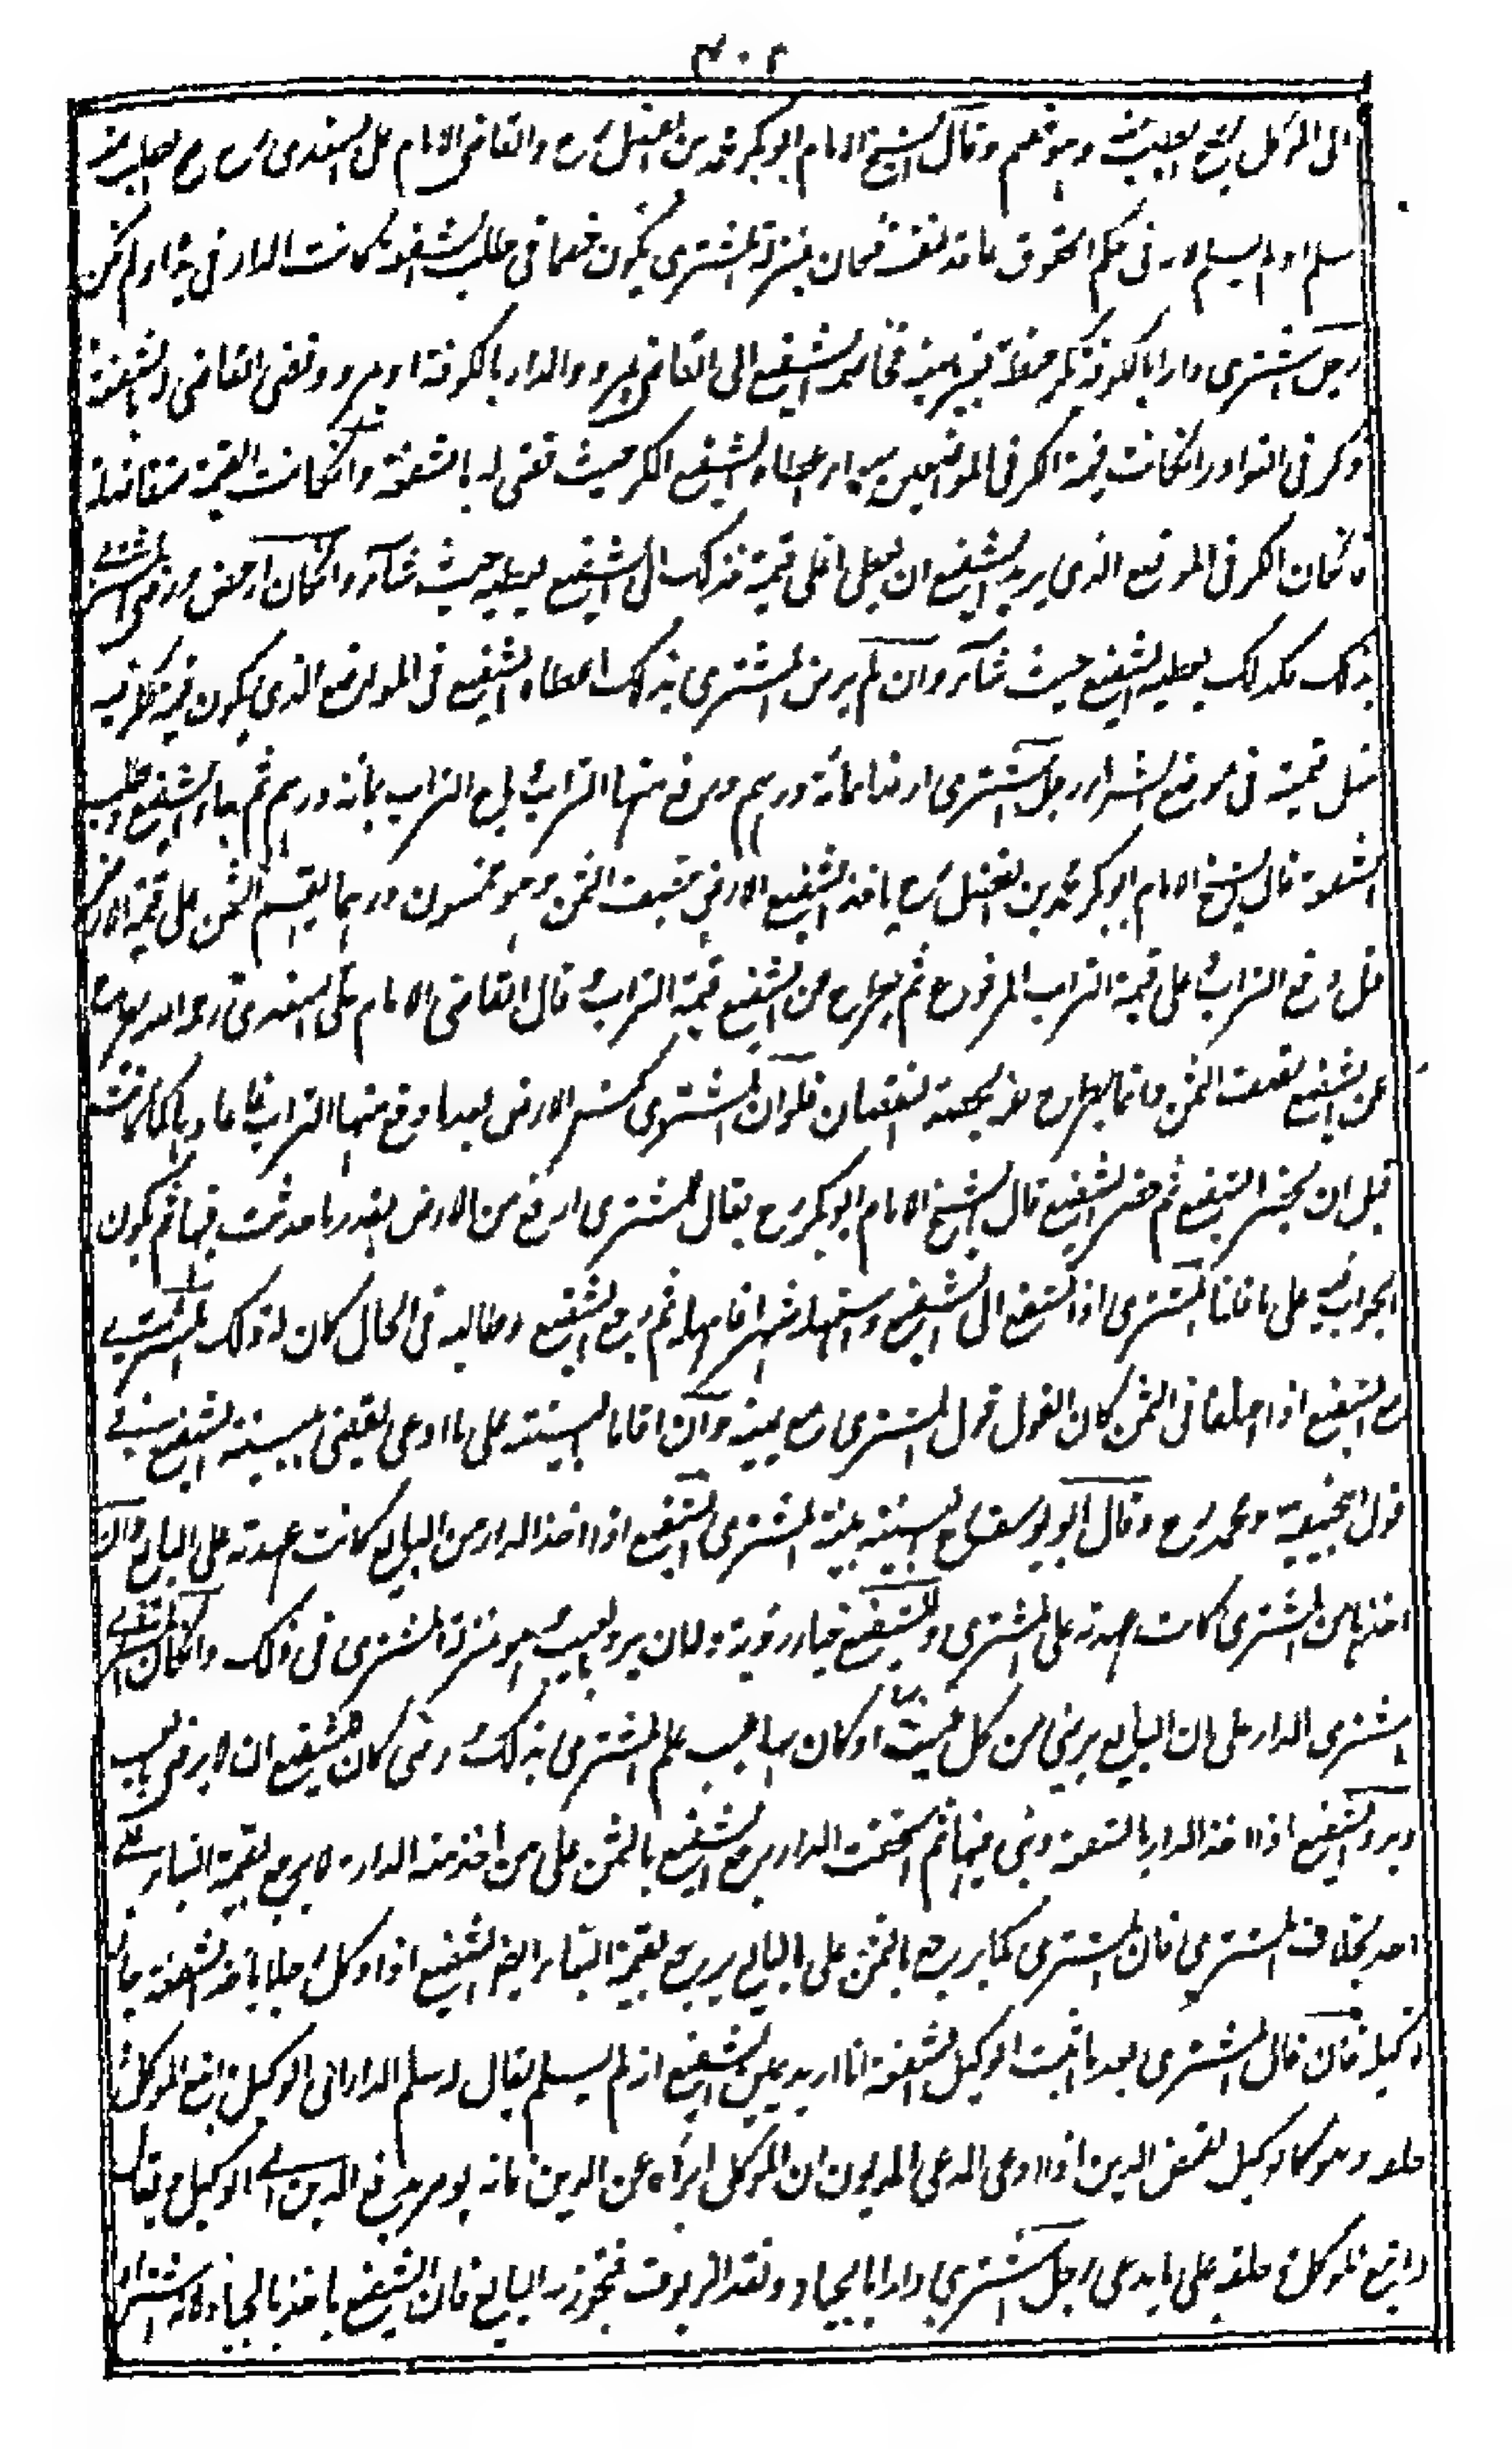 الى الموكل يصح الطلب منه وهو خصم وقال الشيخ الامام ابو بكر محمد بن الفضل رح والقاضي الامام على السغدى رح يصح الطلب منه
سلم او لم يسلم لانه في حكم الحقوق عاقد لنفسه فكان بمنزلة المشترى يكون خصما في طلب الشفعة كانت الدار في يده او لم تكن
رجل اشترى دارا بالكوفة بكر حنطة بغير عينه فخاصمه الشفيع الى القاضي بمرو والدار بالكوفة او بمرو وقضى القاضي له بالشفعة
ذكر في النوادر ان كانت قيمة الكر في الموضعين سواء اعطاه الشفيع الكر حيث قضى له بالشفعة وان كانت القيمة متفاضلة
فان كان الكر في الموضع الذي يريد الشفيع ان يعطى اغلى قيمة فذلك الى الشفيع يعطيه حيث شاء وان كان ارخص ورضي المشترى
بذلك فكذلك يعطيه الشفيع حيث شاء وان لم يرض المشترى بذلك اعطاه الشفيع في الموضع الذي يكون قيمة الكر فيه
مثل قيمته في موضع الشراء رجل اشترى ارضا بمائة درهم ورفع منها التراب وباع التراب بمائة درهم ثم جاء الشفيع وطلب
الشفعة قال الشيخ الامام ابو بكر محمد بن الفضل رح ياخذ الشفيع الارض بنصف الثمن وهو خمسون درهما يقسم الثمن على قيمة الارض
قبل رفع التراب وعلى قيمة التراب المرفوع ثم يطرح عن الشفيع قيمة التراب وقال القاضي الامام على السغدى رحمه الله لا يطرح
عن الشفيع نصف الثمن وانما يطرح عنه بحصة النقصان فلو ان المشترى كبس الارض بعد ما رفع منها التراب فاعادها كما كانت
قبل ان يحضر الشفيع ثم حضر الشفيع قال الشيخ الامام ابو بكر رح يقال للمشترى ارفع من الارض بقدر ما حدثت فيها ثم يكون
الجواب فيه على ما قلنا المشترى اذا دفع الى الشفيع واستمهله شهرا فامهله ثم رجع الشفيع وطالبه في الحال كان له ذلك المشترى
مع الشفيع اذا اختلفا في الثمن كان القول قول المشترى مع يمينه وان اقاما البينة على ما ادعى يقضى ببينة الشفيع في
قول ابي حنيفة ومحمد رح وقال ابو يوسف رح البينة بينة المشترى الشفيع اذا اخذ الدار من البايع كانت عهدته على البايع وان
اخذها من المشترى كانت عهدته على المشترى وللشفيع خيار رؤية وله ان يرد بالعيب وهو بمنزلة المشترى في ذلك وان كان المشترى
اشترى الدار على ان البايع برئ من كل عيب او كان بها عيب علم المشترى بذلك ورضي كان للشفيع ان لا يرضى بالعيب
ويرد الشفيع اذا اخذ الدار بالشفعة وبنى فيها ثم استحقت الدار يرجع الشفيع بالثمن على من اخذ منه الدار ولا يرجع بقيمة البناء على
احد بخلاف المشترى فان المشترى كما يرجع بالثمن على البايع يرجع بقيمة البناء ايضا الشفيع اذا وكل رجلا باخذ الشفعة جاز
توكيله فان قال المشترى بعد ما اثبت الوكيل الشفعة انا اريد يمين الشفيع انه لم يسلم يقال له سلم الدار الى الوكيل واتبع الموكل و
حلفه وهو كالوكيل بقبض الدين اذا ادعى المدعى المديون ان الموكل ابرأه عن الدين فانه يومر بدفع الدين الى الوكيل ويقال
له اتبع الموكل وحلفه على ما يدعى رجل اشترى دارا بالجياد ونقد الزيوف فتجوز به البايع فان الشفيع ياخذ بالجياد لانه اشترى